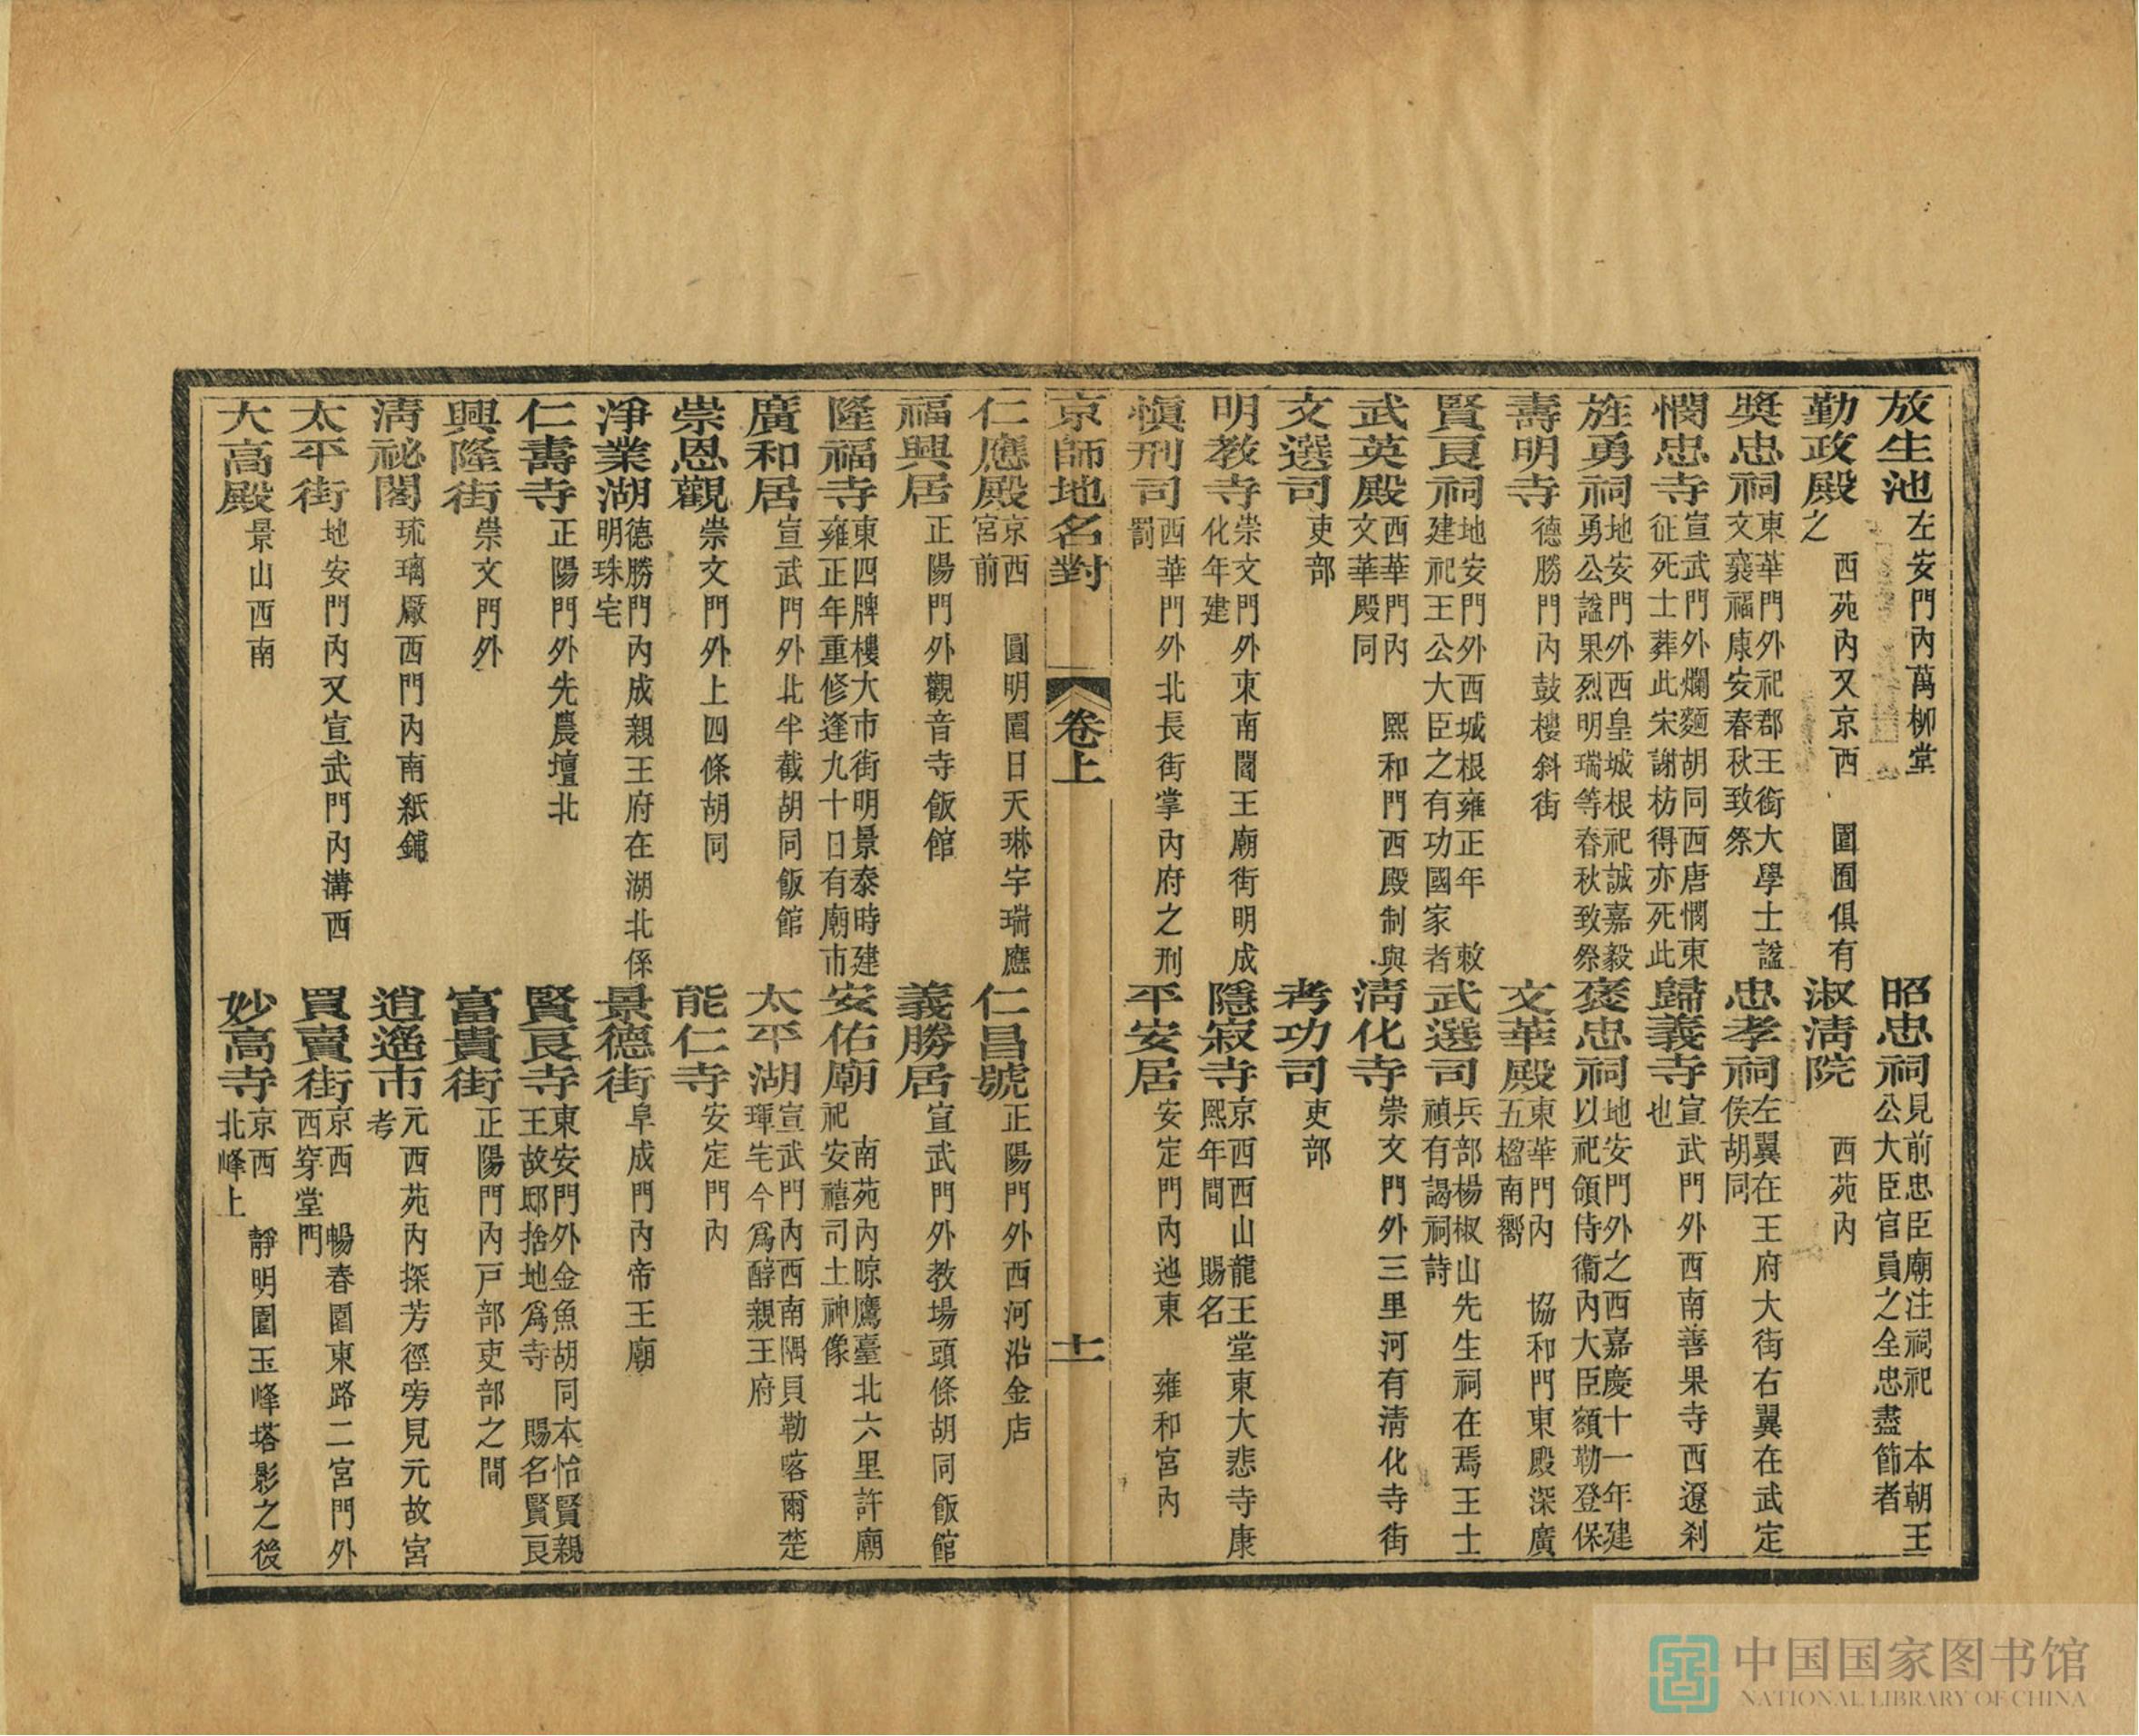 放生池 左安門內萬柳堂 昭忠祠 見前忠臣廟注祠祀 本朝王公大臣官員之全忠盡節者
勤政殿 西苑內又京西 園囿俱有之 淑清院 西苑內
獎忠祠 東華門外祀郡王銜大學士謚文襄福康安春秋致祭 忠孝祠 左翼在王府大街右翼在武定侯胡同
憫忠寺 宣武門外爛麵胡同西唐憫東征死士葬此宋謝枋得亦死此 歸義寺 宣武門外西南善果寺西遼刹也
旌勇祠 地安門外西皇城根祀誠嘉毅勇公謚果烈明瑞等春秋致祭 褒忠祠 地安門外之西嘉慶十一年建以祀領侍衞內大臣額勒登保
壽明寺 德勝門內鼓樓斜街 文華殿 東華門內 協和門東殿深廣五楹南嚮
賢良祠 地安門外西城根雍正年 敕建祀王公大臣之有功國家者 武選司 兵部楊椒山先生祠在焉王士禎有謁祠詩
武英殿 西華門內 熙和門西殿制與文華殿同 清化寺 崇文門外三里河有清化寺街
文選司 吏部 考功司 吏部
明教寺 崇文門外東南閻王廟街明成化年建 隱寂寺 京西西山龍王堂東大悲寺康熙年間 賜名
慎刑司 西華門外北長街掌內府之刑罰 平安居 安定門內迆東 雍和宮內
京師地名對 卷上 十一
仁應殿 京西 圓明園日天琳宇瑞應宮前 仁昌號 正陽門外西河沿金店
福興居 正陽門外觀音寺飯館 義勝居 宣武門外教場頭條胡同飯館
隆福寺 東四牌樓大市街明景泰時建雍正年重修逢九十日有廟市 安佑廟 南苑內晾鷹臺北六里許廟祀安禧司土神像
廣和居 宣武門外北半截胡同飯館 太平湖 宣武門內西南隅貝勒喀爾楚琿宅今為醇親王府
崇恩觀 崇文門外上四條胡同 能仁寺 安定門內
淨業湖 德勝門內成親王府在湖北係明珠宅 景德街 阜成門內帝王廟
仁壽寺 正陽門外先農壇北 賢良寺 東安門外金魚胡同本怡賢親王故邸捨地為寺 賜名賢良
興隆街 崇文門外 富貴街 正陽門內戶部吏部之間
清祕閣 琉璃廠西門內南紙鋪 逍遙市 元西苑內探芳徑旁見元故宮考
太平街 地安門內又宣武門內溝西 買賣街 京西 暢春園東路二宮門外西穿堂門
大高殿 景山西南 妙高寺 京西 靜明園玉峰塔影之後北峰上
中国国家图书馆
NATIONAL LIBRARY OF CHINA